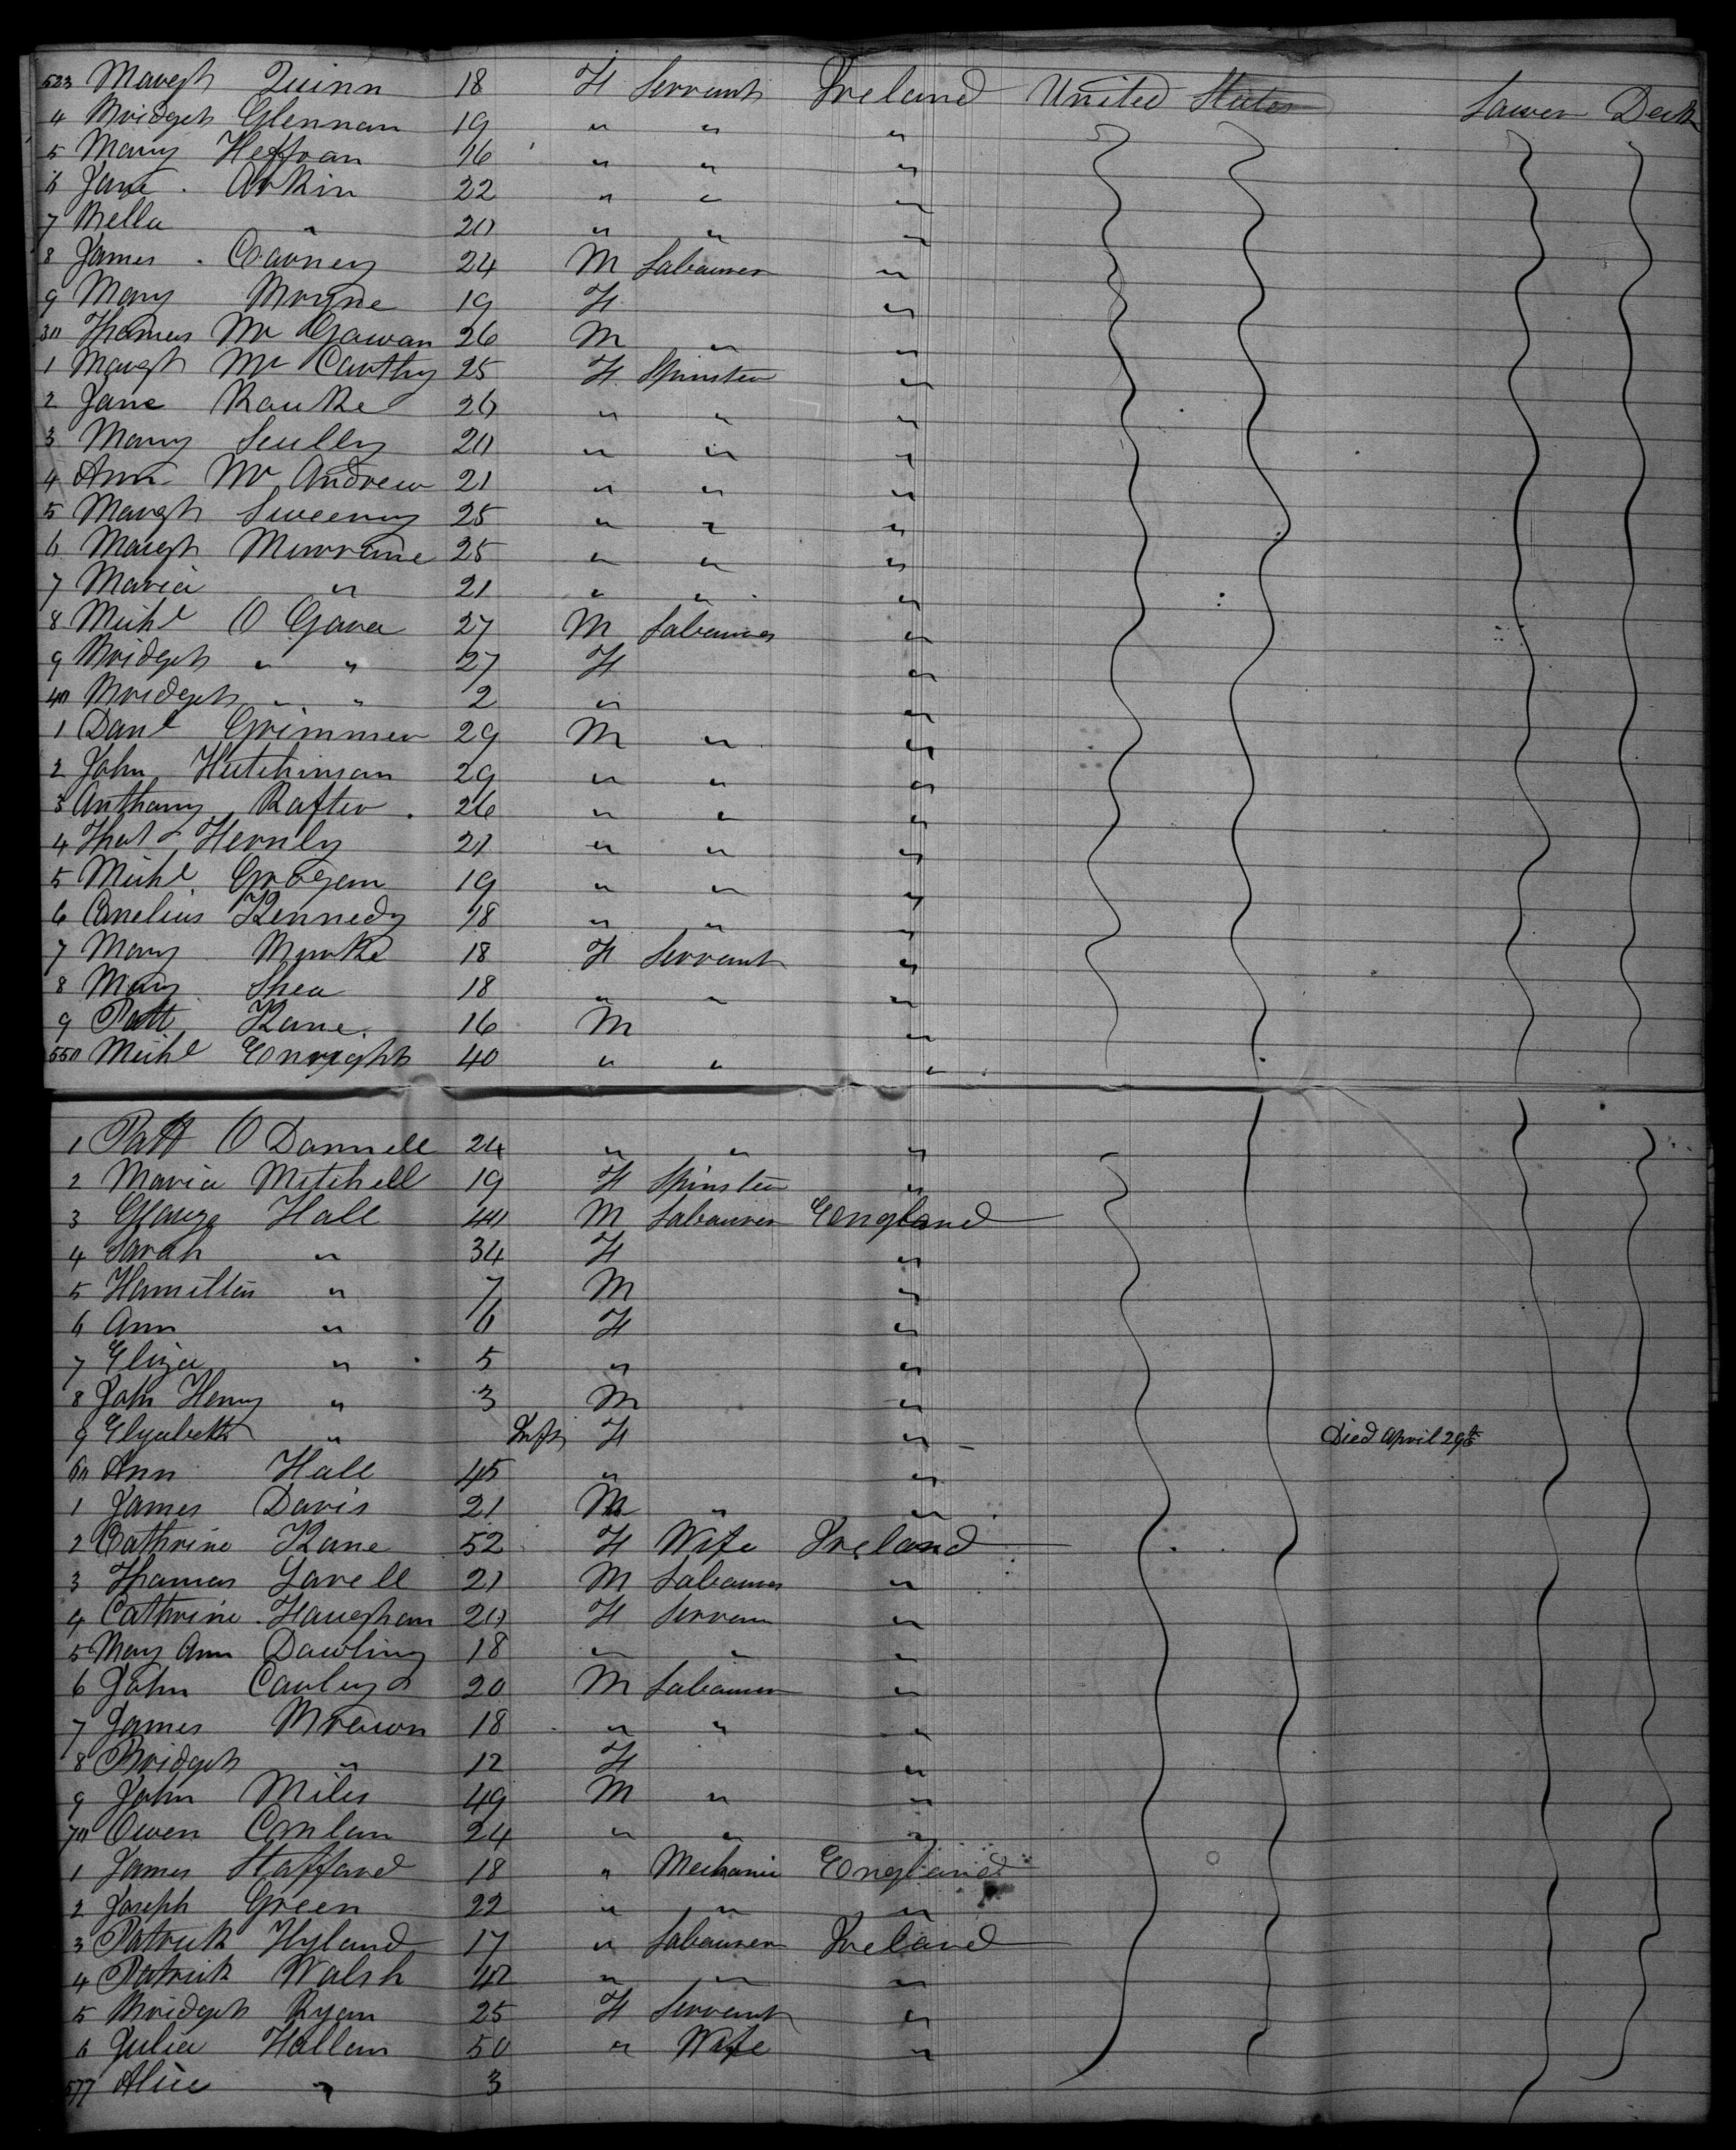 523 Margt Quinn 18 F Servant Ireland United States Lower Deck
4 Bridget Glennan 19 " " "
5 Mary Heffran 16 " " "
6 Jane Arkin 22 " " "
7 Bella " 20 " " "
8 James Carney 24 M Labourer "
9 Mary Boyde 19 F "
30 Thomas Mc Gowan 26 M " "
1 Margt Mc Carthy 25 F Spinster "
2 Jane Rourke 20 " " "
3 Mary Scully 20 " " "
4 Ann Mc Andrew 21 " " "
5 Margt Sweeny 25 " " "
6 Margt Murrane 25 " " "
7 Maria " 21 " " "
8 Michl O Gara 27 M Labourer "
9 Bridget " " 27 F "
40 Bridget " " 2 " "
1 Danl Grimmer 29 M " "
2 John Hutchinson 29 " " "
3 Anthony Rafter 26 " " "
4 Thos Hernly 21 " " "
5 Michl Grogan 19 " " "
6 Cornelius Kennedy 18 " " "
7 Mary Burke 18 F Servant "
8 Mary Shea 18 " " "
9 Patt Kane 16 M "
550 Michl Enright 40 " " "
1 Patt O Donnell 24 " " "
2 Maria Mitchell 19 F Spinster "
3 George Hall 40 M Labourer England
4 Sarah " 34 F "
5 Hamilton " 7 M "
6 Ann " 6 F "
7 Eliza " 5 " "
8 John Henry " 3 M "
9 Elizabeth " Inft F " Died April 29th
60 Ann Hall 45 " "
1 James Davis 21 M " "
2 Cathrine Kane 52 F Wife Ireland
3 Thomas Lavell 21 M Labourer "
4 Cathrine Haughan 20 F Servan "
5 Mary Ann Dowling 18 " " "
6 John Cauley 20 M Labourer "
7 James Brown 18 " " "
8 Bridget " 12 F "
9 John Miles 49 M " "
70 Owen Conlan 24 " " "
1 James Stafford 18 " Mechanic England
2 Joseph Green 22 " " "
3 Patrick Hyland 17 " Labourer Ireland
4 Patrick Walsh 42 " " "
5 Bridget Ryan 25 F Servant "
6 Julia Hallan 50 " Wife "
577 Alice " 3